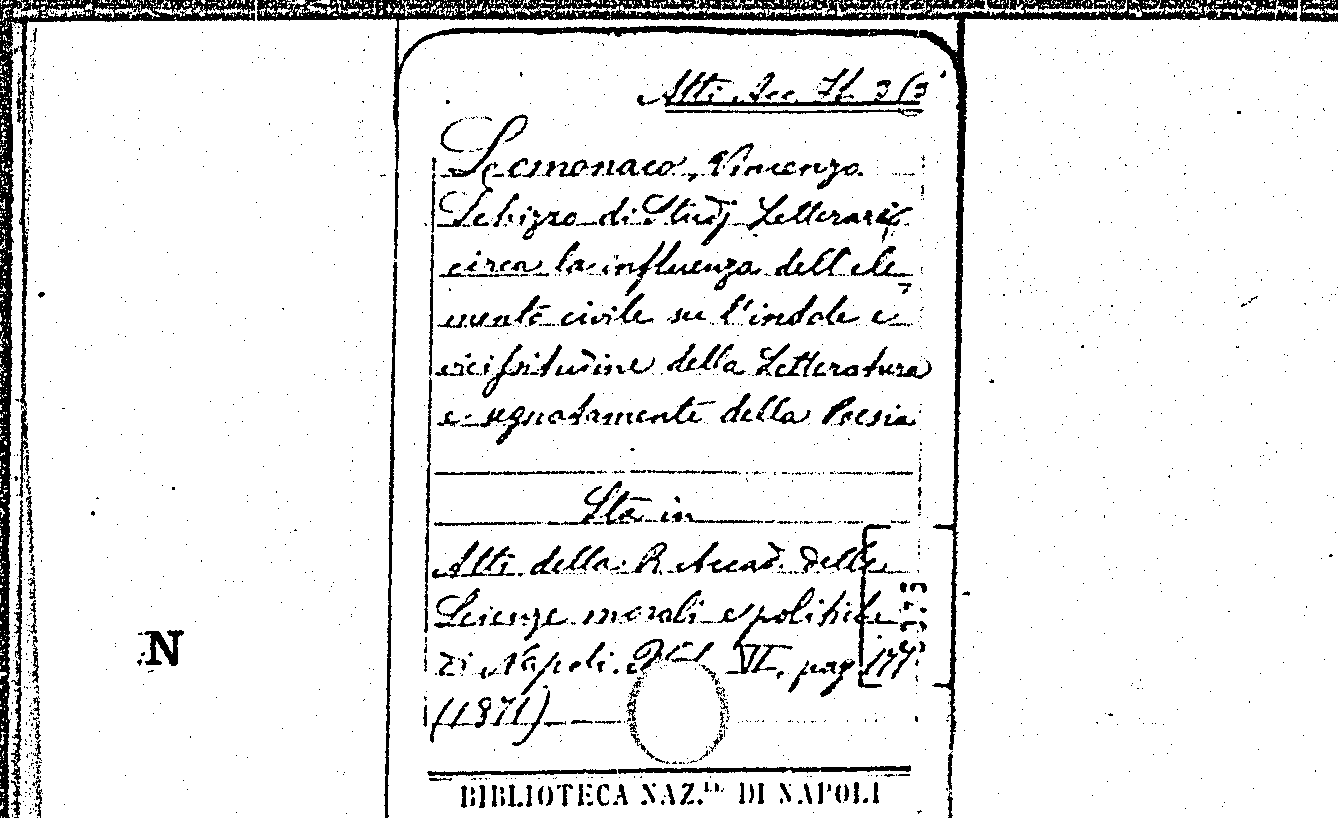 Atti Acc. It. 3 (3
Locmonaco, Vincenzo
Schizzo di Studj Letterarii
circa la influenza dell'ele
mento civile su l'indole e
vicissitudine della Letteratura
e segnatamente della Poesia
Sta in
Atti della R. Accad. delle
Scienze morali e politiche
di Napoli. Vol. VI, pag. 177.
(1871)
5373
N
BIBLIOTECA NAZ.LE DI NAPOLI